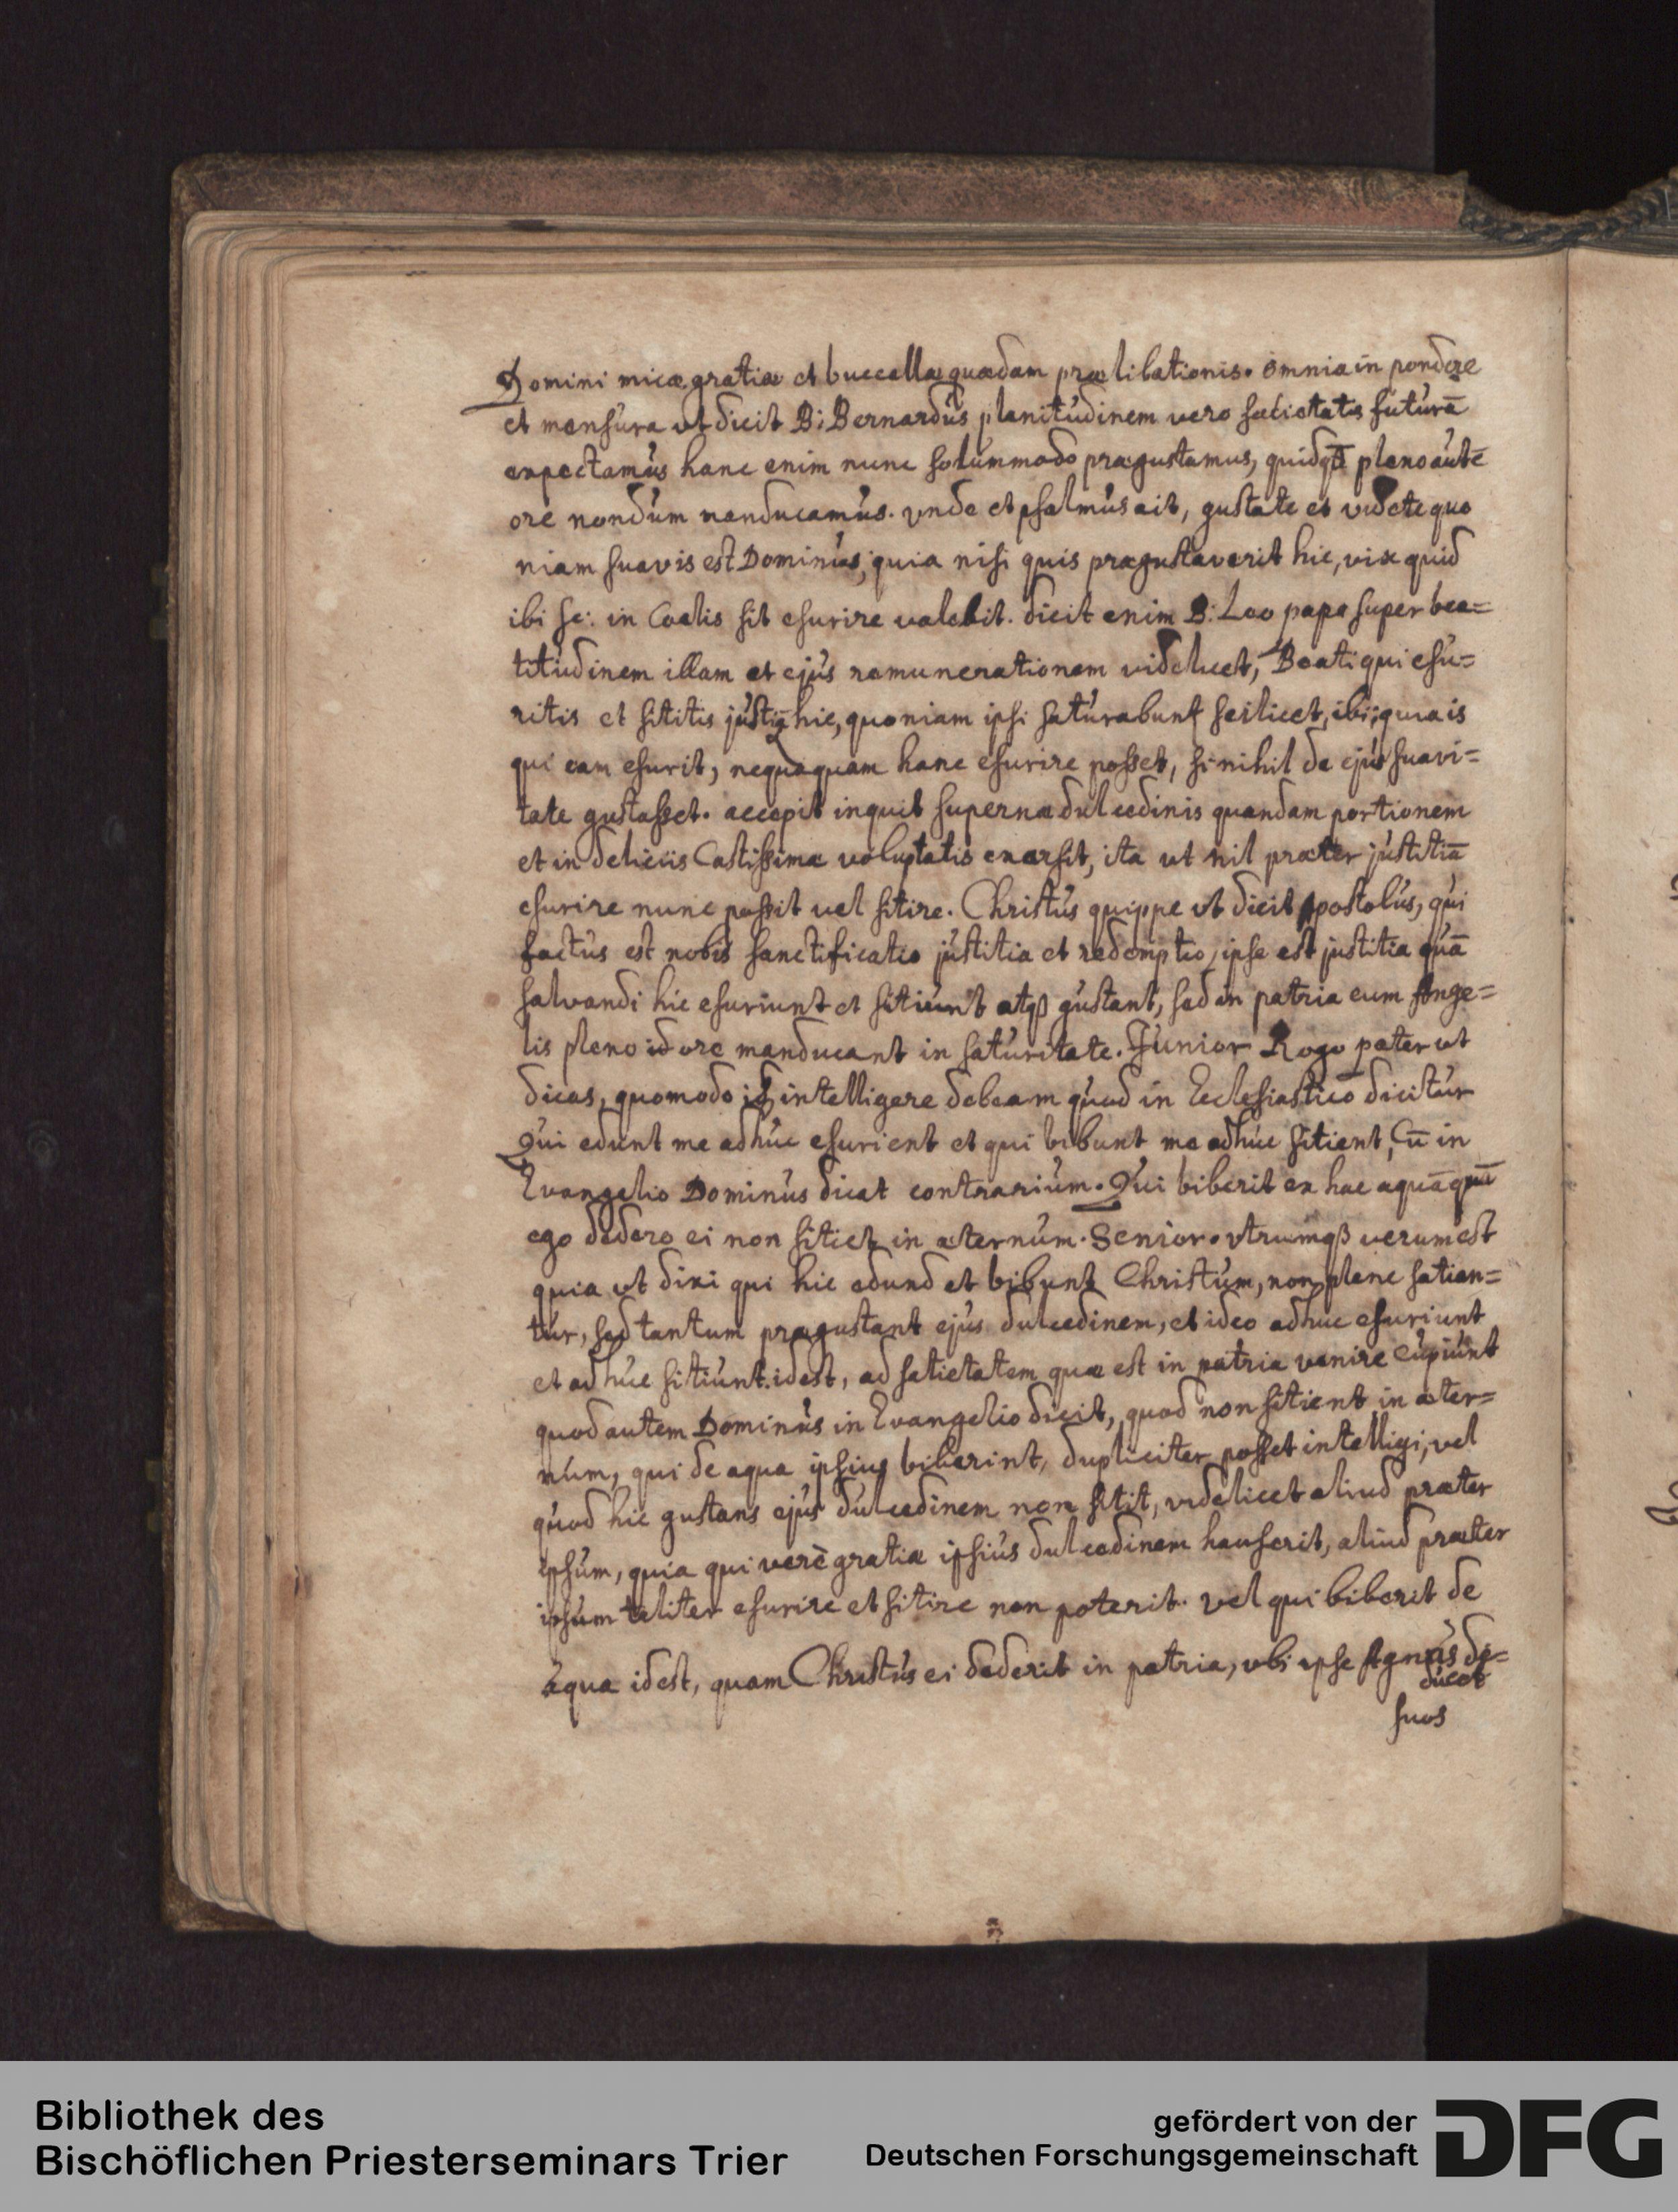 Domini micæ gratiæ et buccellæ quædam prælibationis. omnia in pondere
et mensura ut dicit B: Bernardus plenitudinem vero satietatis futurā
expectamus hanc enim nunc solummodo prægustamus, pleno autē
ore nondum manducamus. vnde et psalmus ait, gustate et videte quo
niam suavis est Dominus; quia nisi quis prægustaverit hic, vix quid
ibi sc: in Coelis sit esurire valebit. dicit enim B: Leo papa super bea=
titudinem illam et ejus remunerationem videlicet, Beati qui esu=
ritis et sititis justiā hic, quoniam ipsi saturabunt scilicet, ibi; quia is
qui eam esurit, nequaquam hanc esurire posset, si nihil de ejus suavi=
tate gustasset. accepit inquit supernæ dulcedinis quandam portionem
et in deliciis Castissimæ voluptatis exarsit, ita ut nil præter justitiā
esurire nunc possit vel sitire. Christus quippe ut dicit Apostolus, qui
factus est nobis sanctificatio justitia et redemptio, ipse est justitia quā
salvandi hic esuriunt et sitiunt atqß gustant, sed in patria cum Ange=
lis pleno id ore manducant in saturitate. Junior Rogo pater ut
dicas, quomodo id intelligere debeam quod in Ecclesiastico dicitur
Qui edunt me adhuc esurient et qui bibunt me adhuc sitient, Cū in
Evangelio Dominus dicat contrarium. Qui biberit ex hac aquā quā
ego dedero ei non sitiet in æternum. Senior. vtrumqß verum est
quia ut dixi qui hic edund et bibunt Christum, non plene satian=
tur, sed tantum prægustant ejus dulcedinem, et ideo adhuc esuriunt
et adhuc sitiunt. idest, ad satietatem quæ est in patria venire cupiunt
quod autem Dominus in Evangelio dicit, quod non sitient in æter=
num, qui de aqua ipsius biberint, dupliciter posset intelligi, vel
quod hic gustans ejus dulcedinem non sitit, videlicet aliud præter
ipsum, quia qui verè gratiæ ipsius dulcedinem hauserit, aliud præter
ipsum taliter esurire et sitire non poterit. vel qui biberit de
aqua idest, quam Christus ei dederit in patria, vbi ipse Agnus de=
ducet
suos
Bibliothek des
Bischöflichen Priesterseminars Trier
gefördert von der
Deutschen Forschungsgemeinschaft
DFG